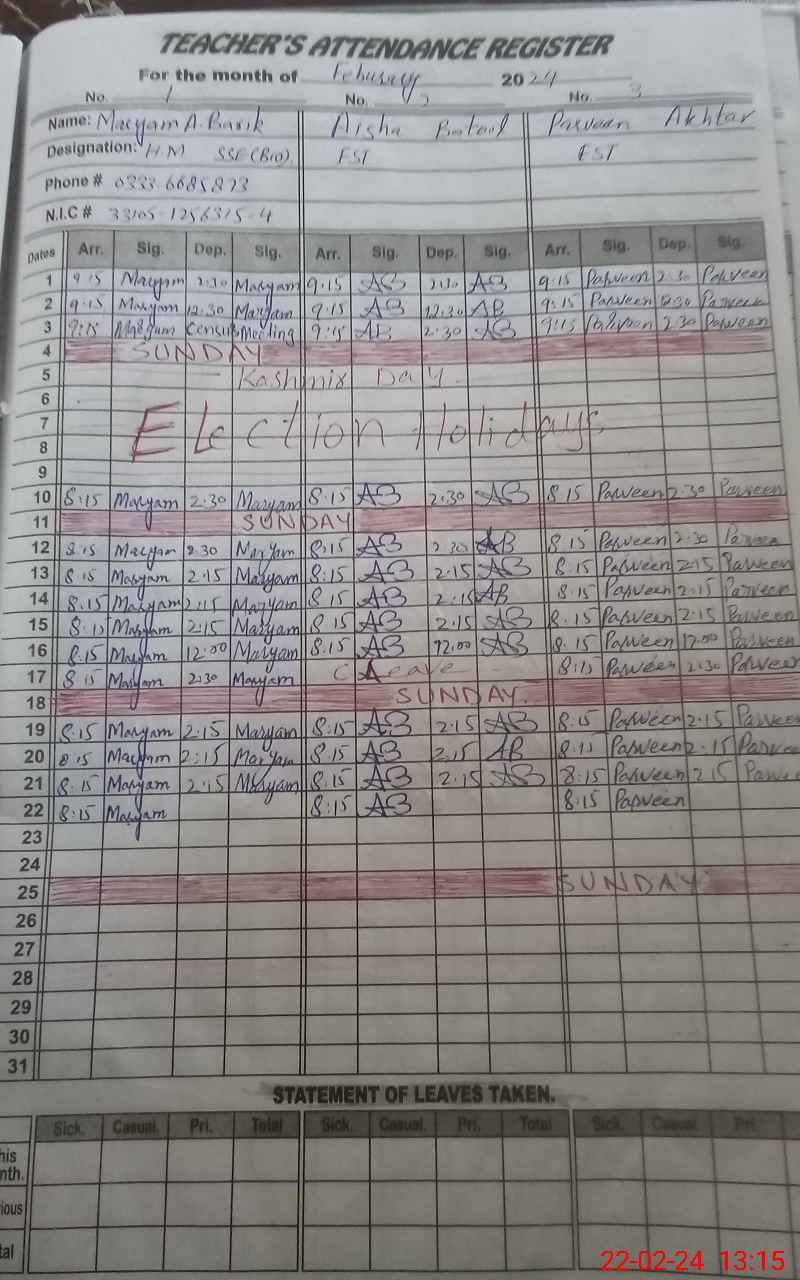 TEACHER'S ATTENDANCE REGISTER
For the month of Febuary 2024
No. 1 No. 2 No. 3
Name: Maryam A. Barik Aisha Batool Parveen Akhtar
Designation: H.M SSE(Bio). EST EST
Phone # 0333-6685873
N.I.C # 33105-1256315-4
Dates Arr. Sig. Dep. Sig. Arr. Sig. Dep. Sig. Arr. Sig. Dep. Sig.
1 9:15 Maryam 2:30 Maryam 9:15 AB 2:30 AB 9:15 Parveen 2:30 Parveen
2 9:15 Maryam 12.30 Maryam 9:15 AB 12.30 AB 9:15 Parveen 12:30 Parveen
3 9:15 Maryam Census Meeting 9:15 AB 2:30 AB 9:15 Parveen 2:30 Parveen
4 SUNDAY
5 Kashmir Day
6
7 Election Holidays
8
9
10 8:15 Maryam 2:30 Maryam 8:15 AB 2:30 AB 8:15 Parveen 2:30 Parveen
11 SUNDAY
12 8:15 Maryam 2:30 Maryam 8:15 AB 2:30 AB 8:15 Parveen 2:30 Parveen
13 8:15 Maryam 2:15 Maryam 8:15 AB 2:15 AB 8:15 Parveen 2:15 Parveen
14 8:15 Maryam 2:15 Maryam 8:15 AB 2:15 AB 8:15 Parveen 2:15 Parveen
15 8:15 Maryam 2:15 Maryam 8:15 AB 2:15 AB 8:15 Parveen 2:15 Parveen
16 8:15 Maryam 12:00 Maryam 8:15 AB 12:00 AB 8:15 Parveen 12:00 Parveen
17 8:15 Maryam 2:30 Maryam C Leave 8:15 Parveen 2:30 Parveen
18 SUNDAY
19 8:15 Maryam 2:15 Maryam 8:15 AB 2:15 AB 8:15 Parveen 2:15 Parveen
20 8:15 Maryam 2:15 Maryam 8:15 AB 2:15 AB 8:15 Parveen 2:15 Parveen
21 8:15 Maryam 2:15 Maryam 8:15 AB 2:15 AB 8:15 Parveen 2:15 Parvee
22 8:15 Maryam 8:15 AB 8:15 Parveen
23
24
25 SUNDAY
26
27
28
29
30
31
STATEMENT OF LEAVES TAKEN.
Sick. Casual. Pri. Total Sick. Casual. Pri. Total Sick. Casual Pri.
his
nth.
ious
tal
22-02-24 13:15